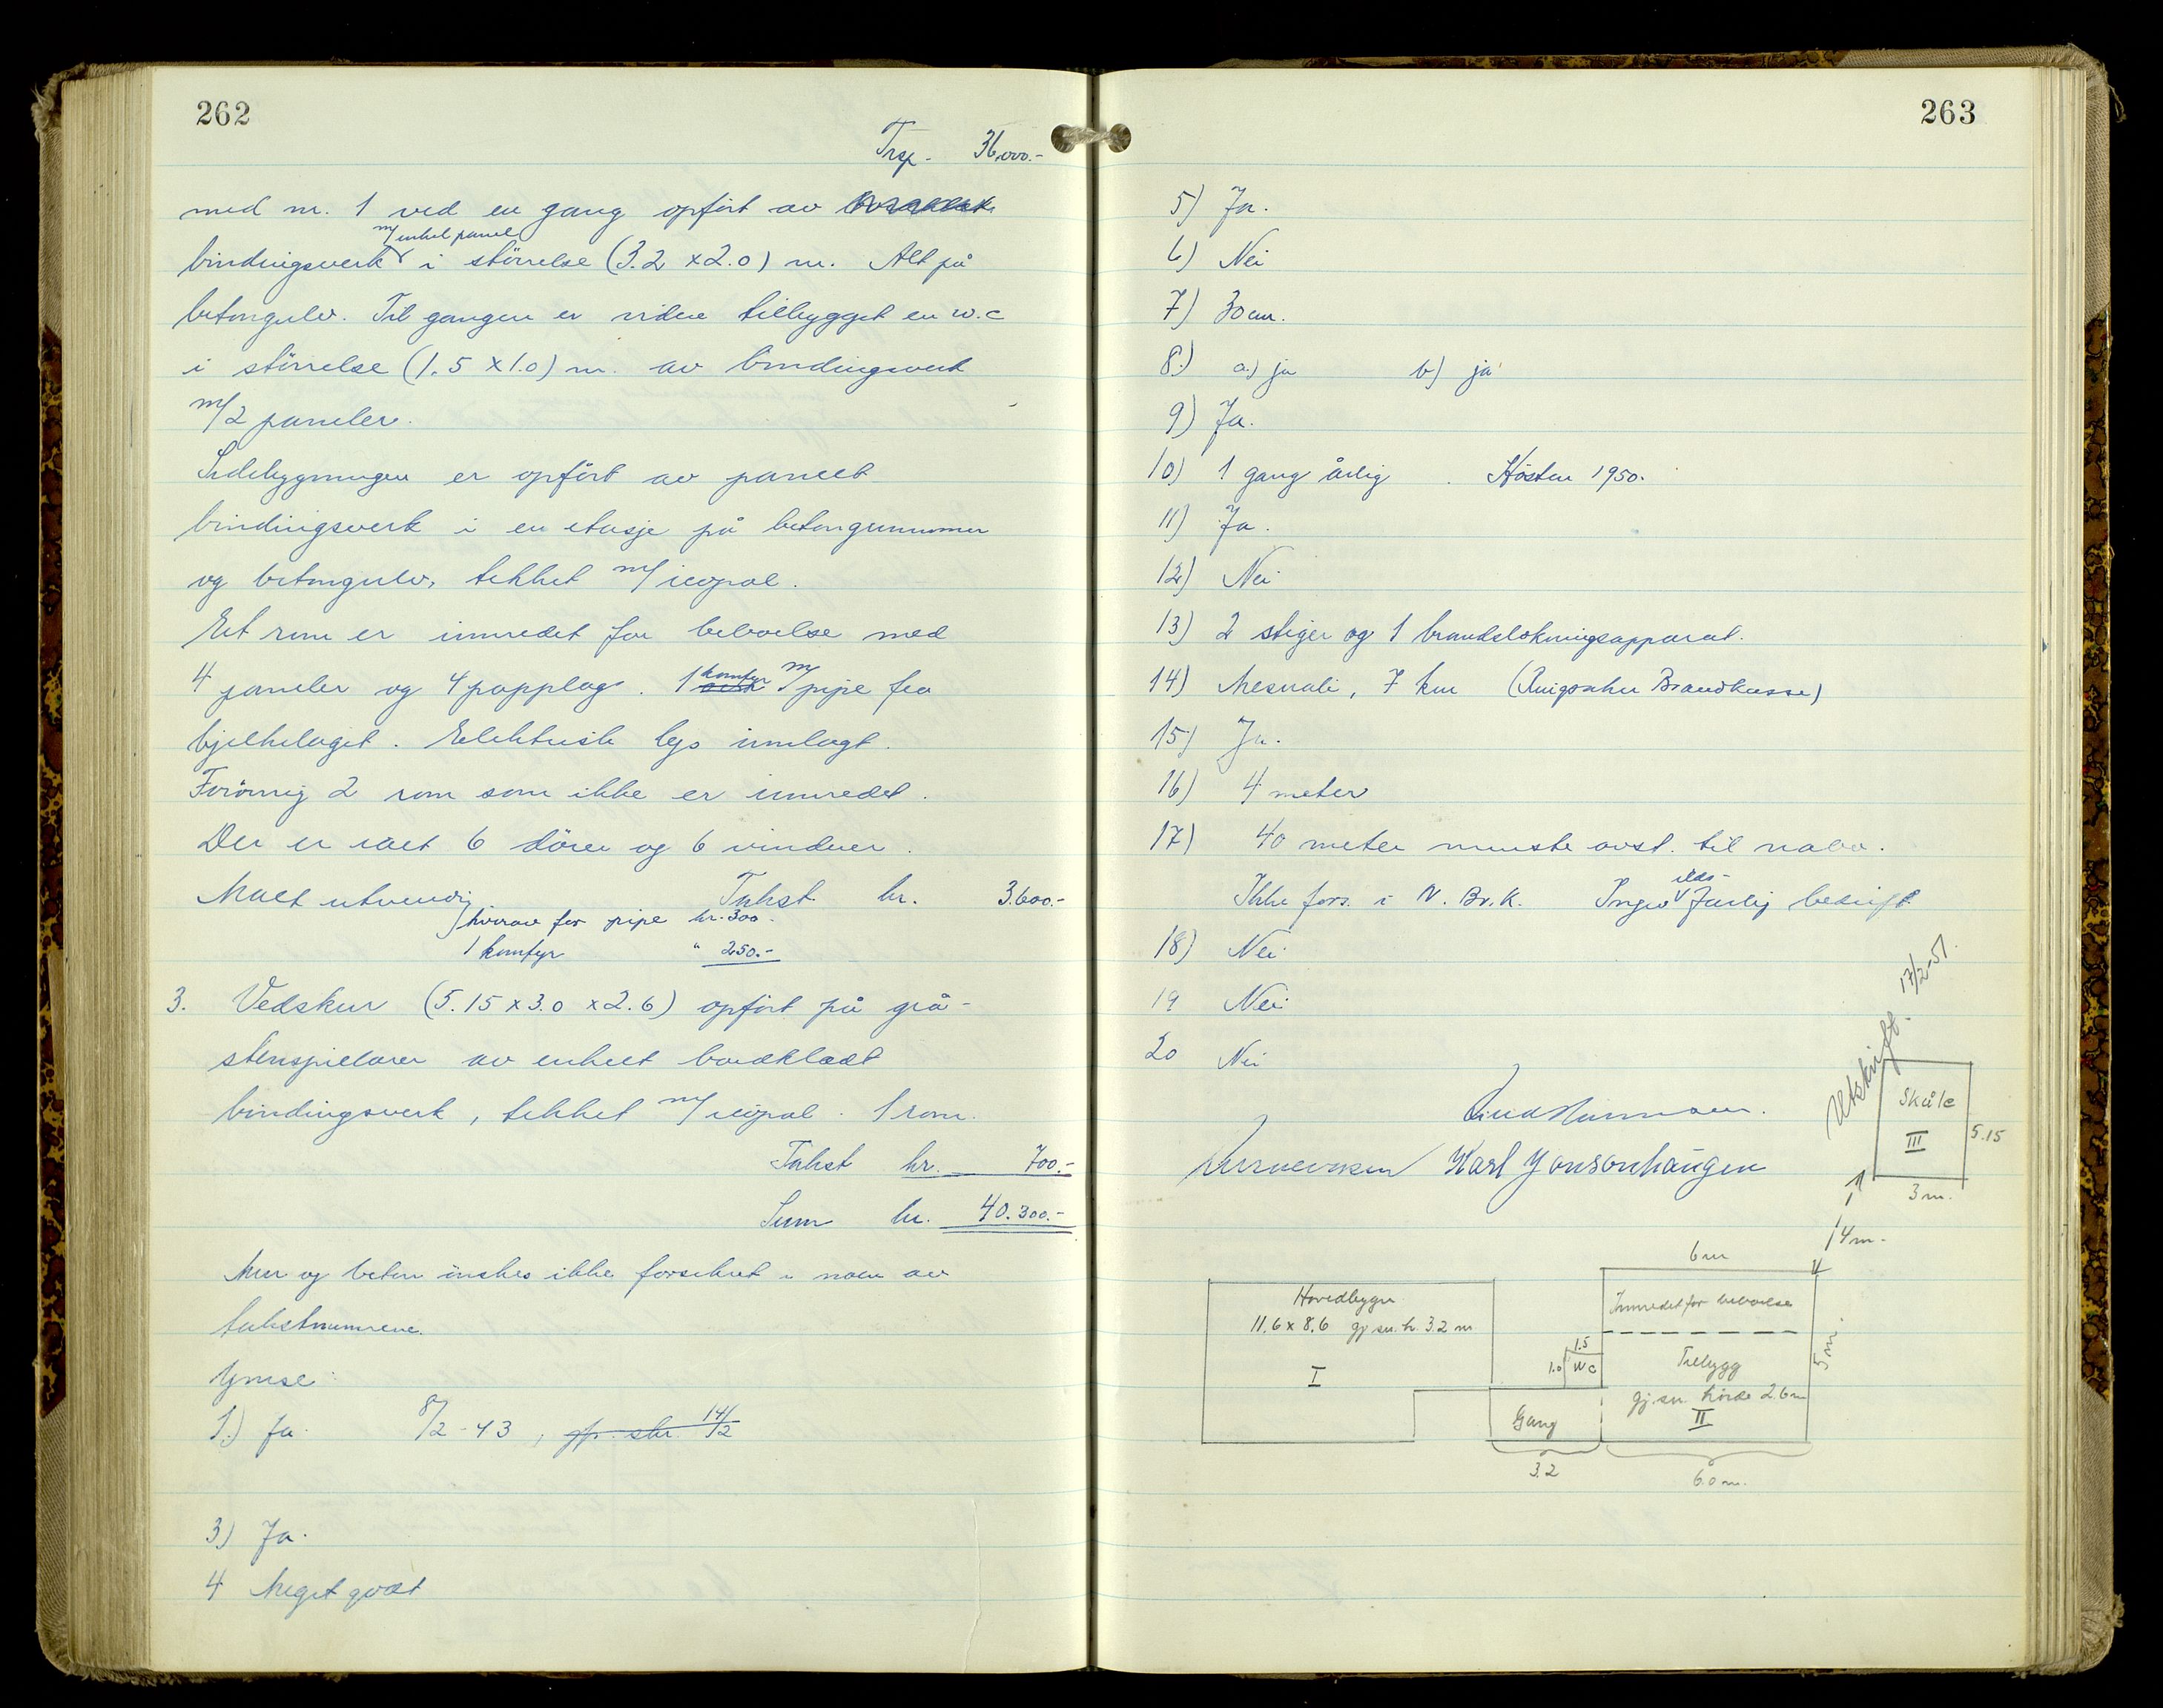 262
Trsp. 36,000.-
med nr. 1 ved en gang opført av
m/enkel panel
bindingsverk i størrelse (3.2 x 2.0) m. Alt på
betongulv. Til gangen er videre tilbygget en w.c
i størrelse (1.5 x 1.0) m. av bindingsverk
m/2 paneler.
Sidebygningen er opført av panelt
bindingsverk i en etasje på betongrunnmur
og betongulv, tekket m/icopal.
Et rom er innredet for beboelse med
4 paneler og 4 papplag. 1 komfyr m/pipe fra
bjelkelaget. Elektrisk lys innlagt.
Forøvrig 2 rom som ikke er innredet.
Der er ialt 6 dører og 6 vinduer.
Malt utvendig Takst kr. 3.600.-
hvorav for pipe kr. 300.
1 komfyr " 250.-
3. Vedskur (5.15 x 3.0 x 2.6) opført på grå-
stenspilarer av enkelt bordklædt
bindingsverk, tekket m/icopal. 1 rom.
Takst kr. 700.-
Sum kr. 40.300.-
Mur og beton ønskes ikke forsikret i noen av
takstnumrene.
Ymse:
1.) Ja. 8/2-43, gp. skr. 14/2
3) Ja.
4 Meget godt
263
5) Ja.
6) Nei
7) 30 cm.
8.) a.) ja b) ja
9) Ja.
10) 1 gang årlig . Høsten 1950.
11) Ja.
12) Nei
13) 2 stiger og 1 brandslokningsapparat.
14) Mesnali, 7 km (Ringsaker Brandkasse)
15) Ja.
16) 4 meter
17) 40 meter minste avst. til nabo.
ilds-
Ikke fors. i N. Br. K. Ingen farlig bedrift
18) Nei
19 Nei
20 Nei
Utskrift. 17/2-51.
Karl Jonsonhaugen
Skåle
III
5.15
3 m.
14 m.
6 m
Hovedbygn
11.6 x 8.6 gj.sn.h. 3.2 m
I
Innredet for beboelse
1.5
1.0 WC
Tilbygg
gj.sn. høide 2.6 m
II
5 m.
Gang
3.2
6.0 m.